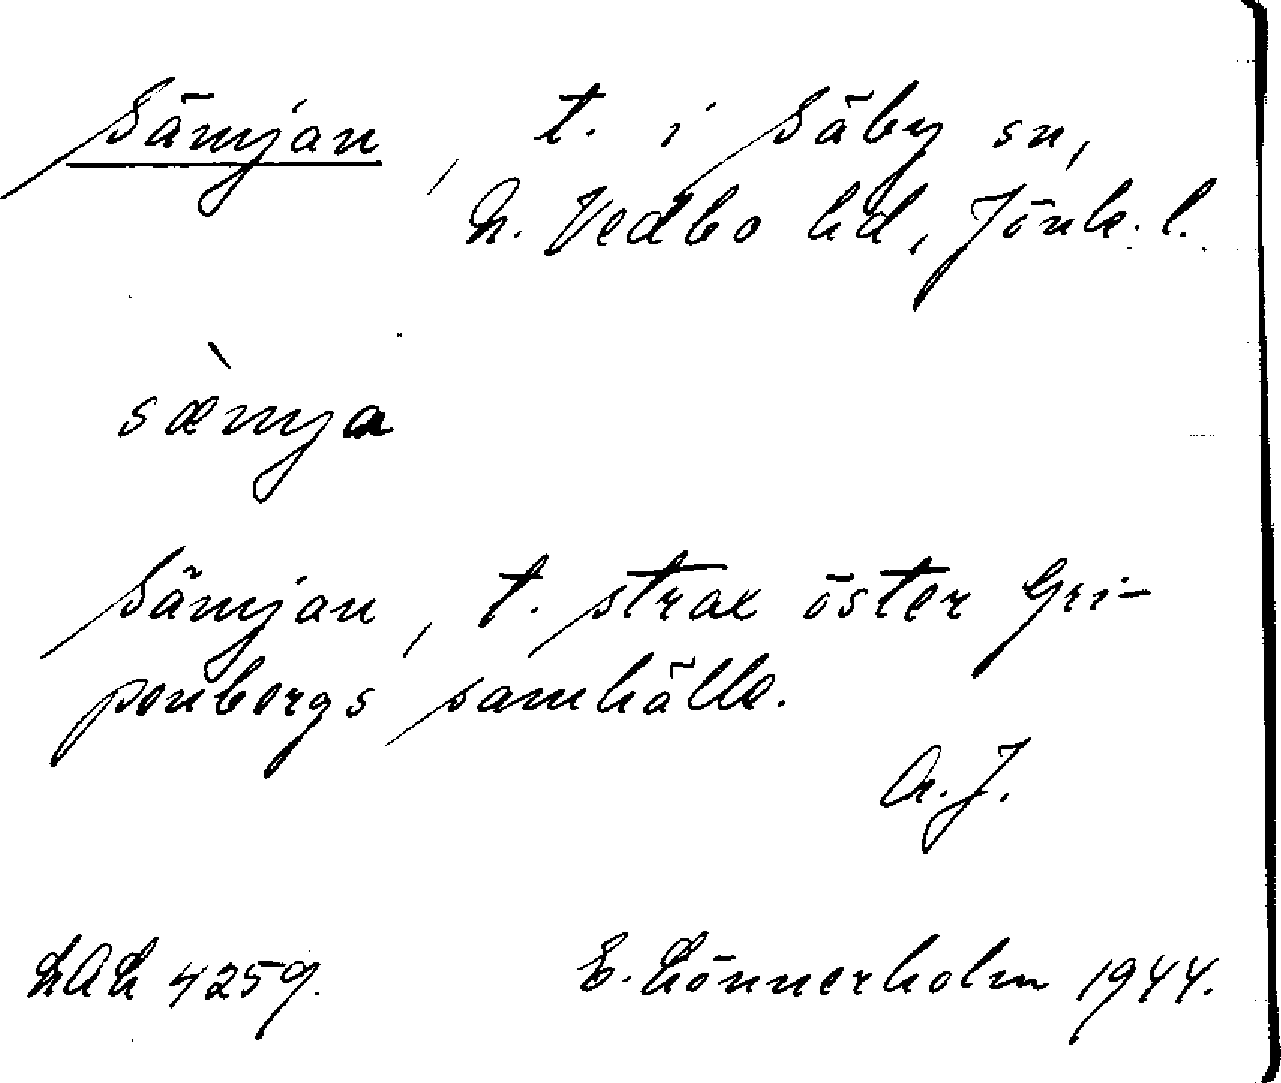 Sämjan, t. i Säby sn,
N. Vedbo hd, Jönk. l.
sæ̀mja
Sämjan, t. strax öster Gri-
penbergs samhälle.
A. J.
LAL 4259.
E. Lönnerholm 1944.